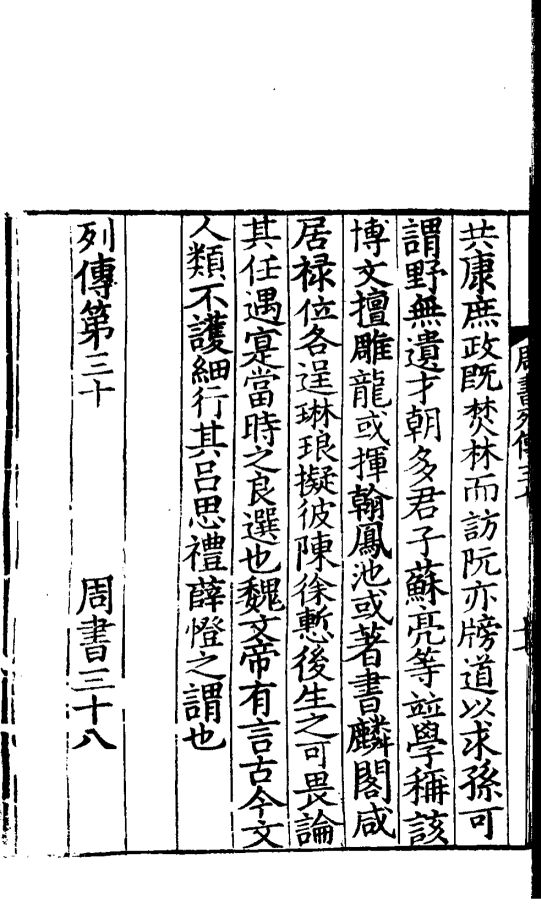 周書列傳三十
共康庶政既焚林而訪阮亦牓道以求孫可
謂野無遺才朝多君子蘇亮等並學稱該
博文擅雕龍或揮翰鳳池或著書麟閣咸
居禄位各逞琳琅擬彼陳徐慙後生之可畏論
其任遇寔當時之良選也魏文帝有言古今文
人類不護細行其呂思禮薛憕之謂也
列傳第三十 周書三十八